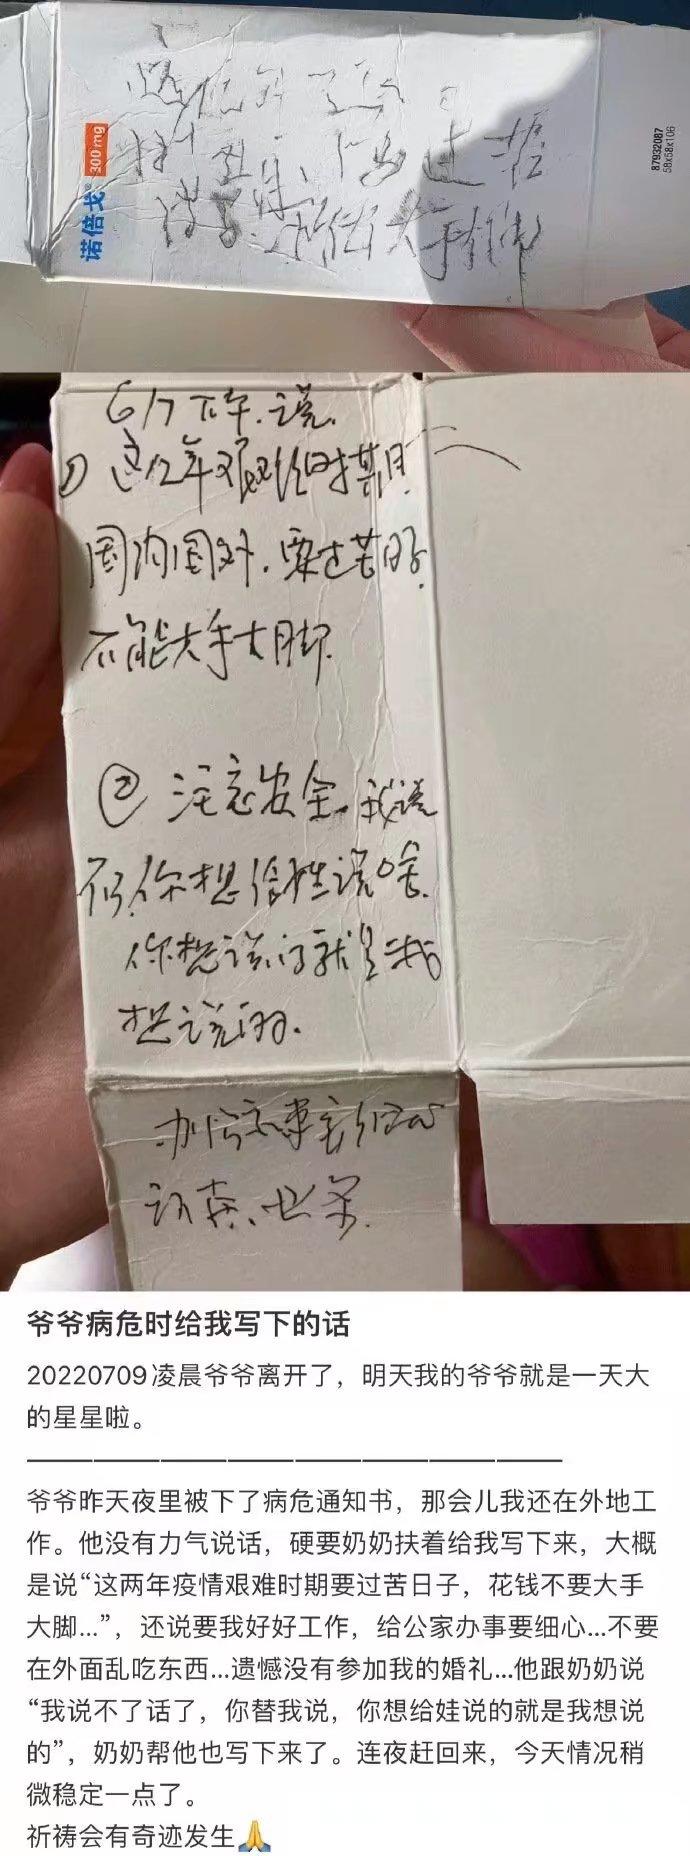 诺倍戈 300mg
87932087
58x58x106
大手大脚
6/7下午.说.
① 这几年艰难时期
国内国外.要过苦日子.
不能大手大脚
② 注意安全.我说
不了.你想给娃说啥.
你想说的就是我
想说的.
办公家事要细心
认真、
爷爷病危时给我写下的话
20220709凌晨爷爷离开了，明天我的爷爷就是一天大
的星星啦。
————————————————
爷爷昨天夜里被下了病危通知书，那会儿我还在外地工
作。他没有力气说话，硬要奶奶扶着给我写下来，大概
是说“这两年疫情艰难时期要过苦日子，花钱不要大手
大脚...”，还说要我好好工作，给公家办事要细心...不要
在外面乱吃东西...遗憾没有参加我的婚礼...他跟奶奶说
“我说不了话了，你替我说，你想给娃说的就是我想说
的”，奶奶帮他也写下来了。连夜赶回来，今天情况稍
微稳定一点了。
祈祷会有奇迹发生🙏